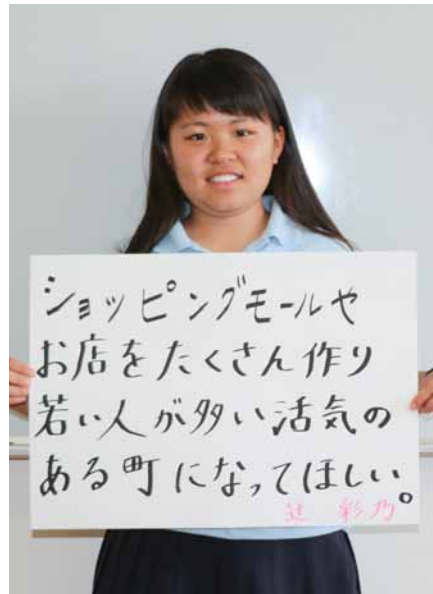 ショッピングモールや
お店をたくさん作り
若い人が多い活気の
ある町になってほしい。
辻 彩乃